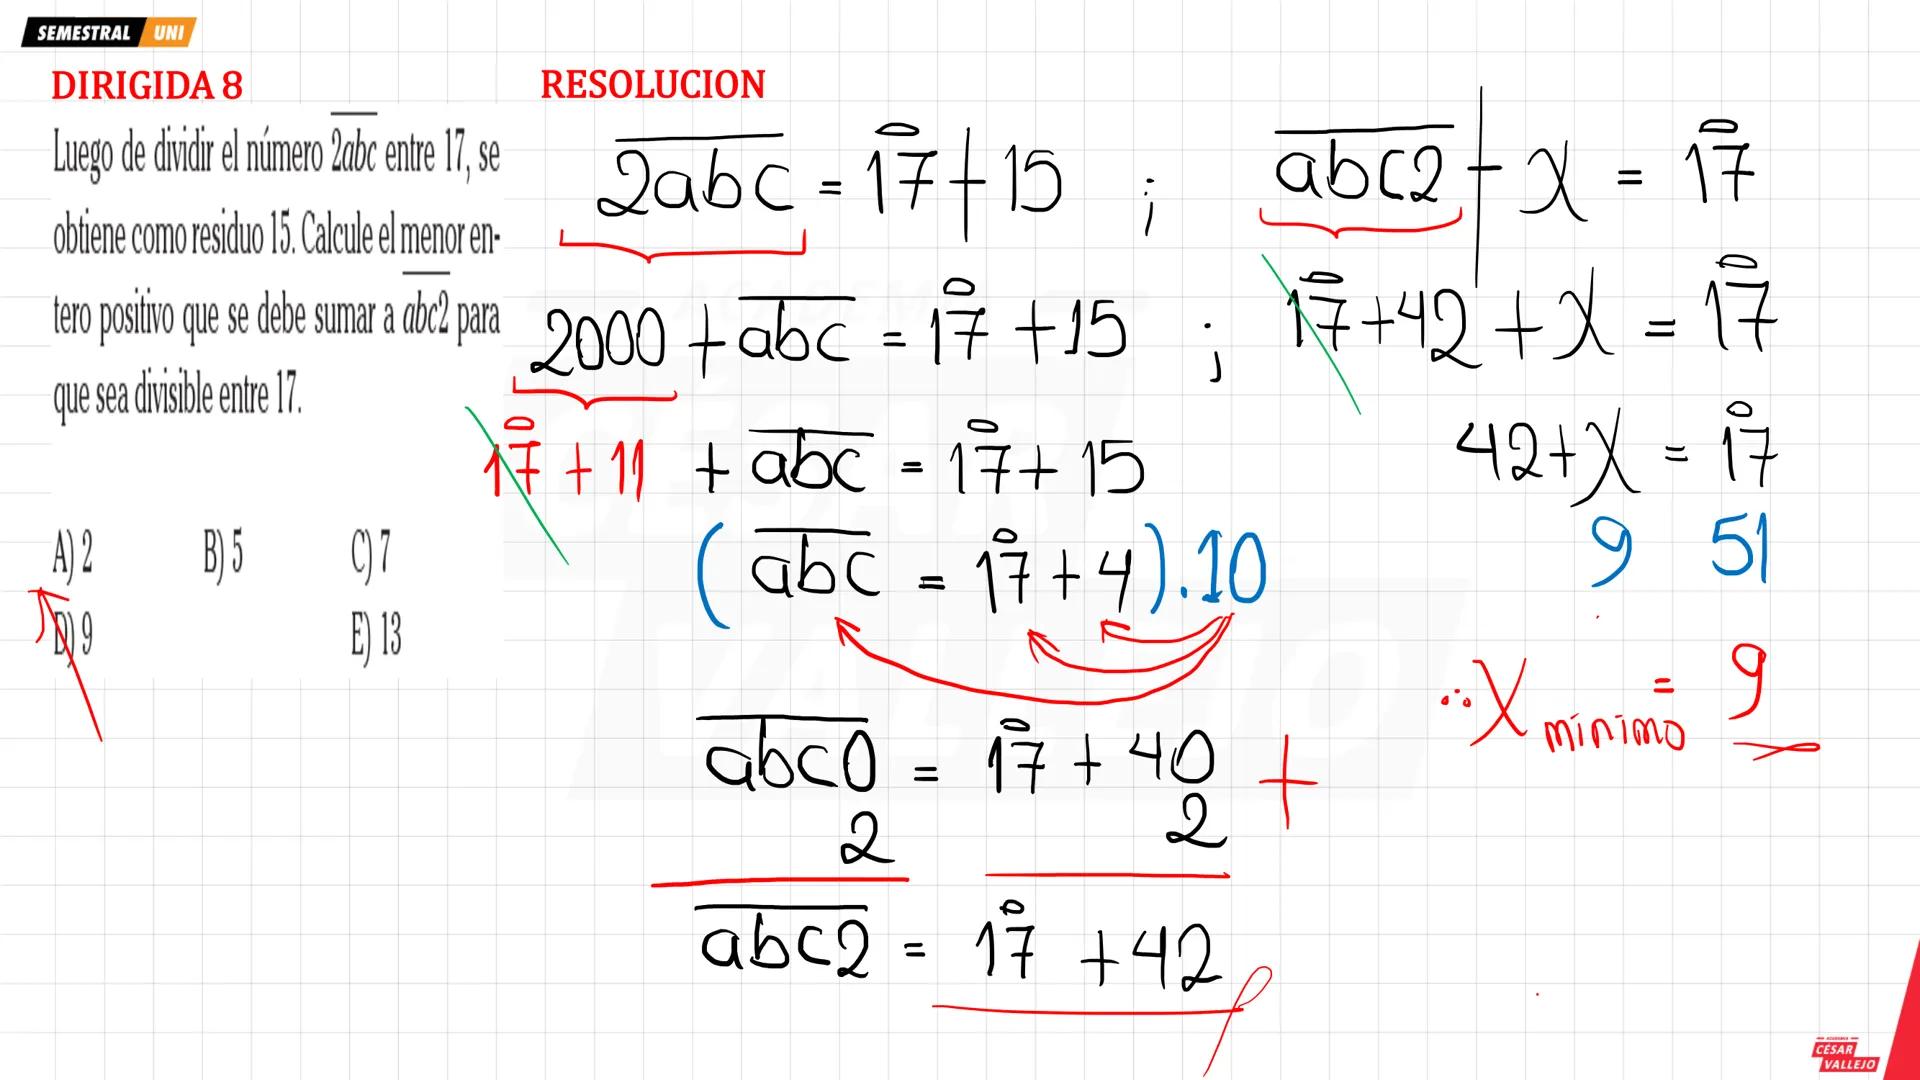 SEMESTRAL UNI
DIRIGIDA 8
Luego de dividir el número 2abc entre 17, se
obtiene como residuo 15. Calcule el menor en-
tero positivo que se debe sumar a abc2 para
que sea divisible entre 17.
A) 2 B) 5 C) 7
D) 9 E) 13
RESOLUCION
2abc = 17 + 15 ; abc2 + x = 17
2000 + abc = 17 + 15 ; 17 + 42 + x = 17
17 + 11 + abc = 17 + 15
42 + x = 17
(abc = 17 + 4).10
9 51
abc0 = 17 + 40 +
2 2
abc2 = 17 + 42
∴ x mínimo = 9
ACADEMIA
CÉSAR
VALLEJO
ACADEMIA
CÉSAR
VALLEJO